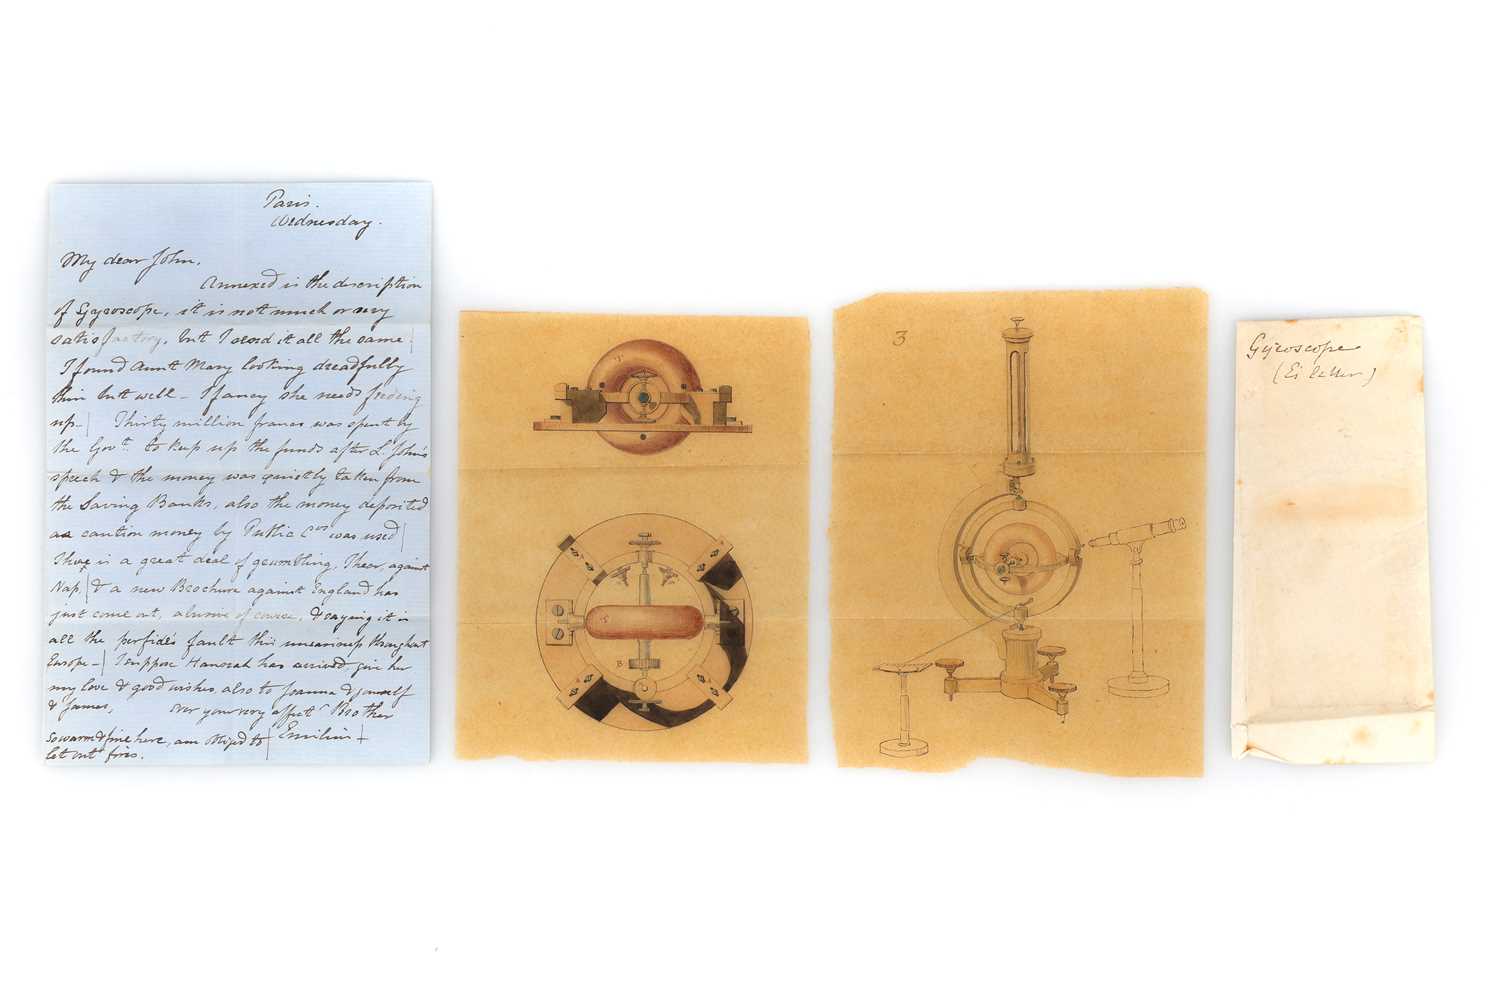 Paris.
Wednesday.
My dear John.
Annexed is the description
of Gyroscope, it is not much or very
satisfactory, but I send it all the same
I found Aunt Mary looking dreadfully
thin but well - I fancy she needs feeding
up - Thirty million francs was spent by
the Govt. to keep up the funds after L. John's
speech & the money was quietly taken from
the Saving Banks, also the money deposited
as caution money by Public Cos was used
There is a great deal of grumbling, There, against
Nap, & a new Brochure against England has
just come out, abusive of course, & saying it is
all the perfide's fault this uneasiness throughout
Europe - I suppose Hannah has arrived give her
my love & good wishes, also to Joanna & yourself
& James, Ever your very affect Brother
so warm & fine here, am obliged to
let out fires.
T
T
B
3
Gyroscope